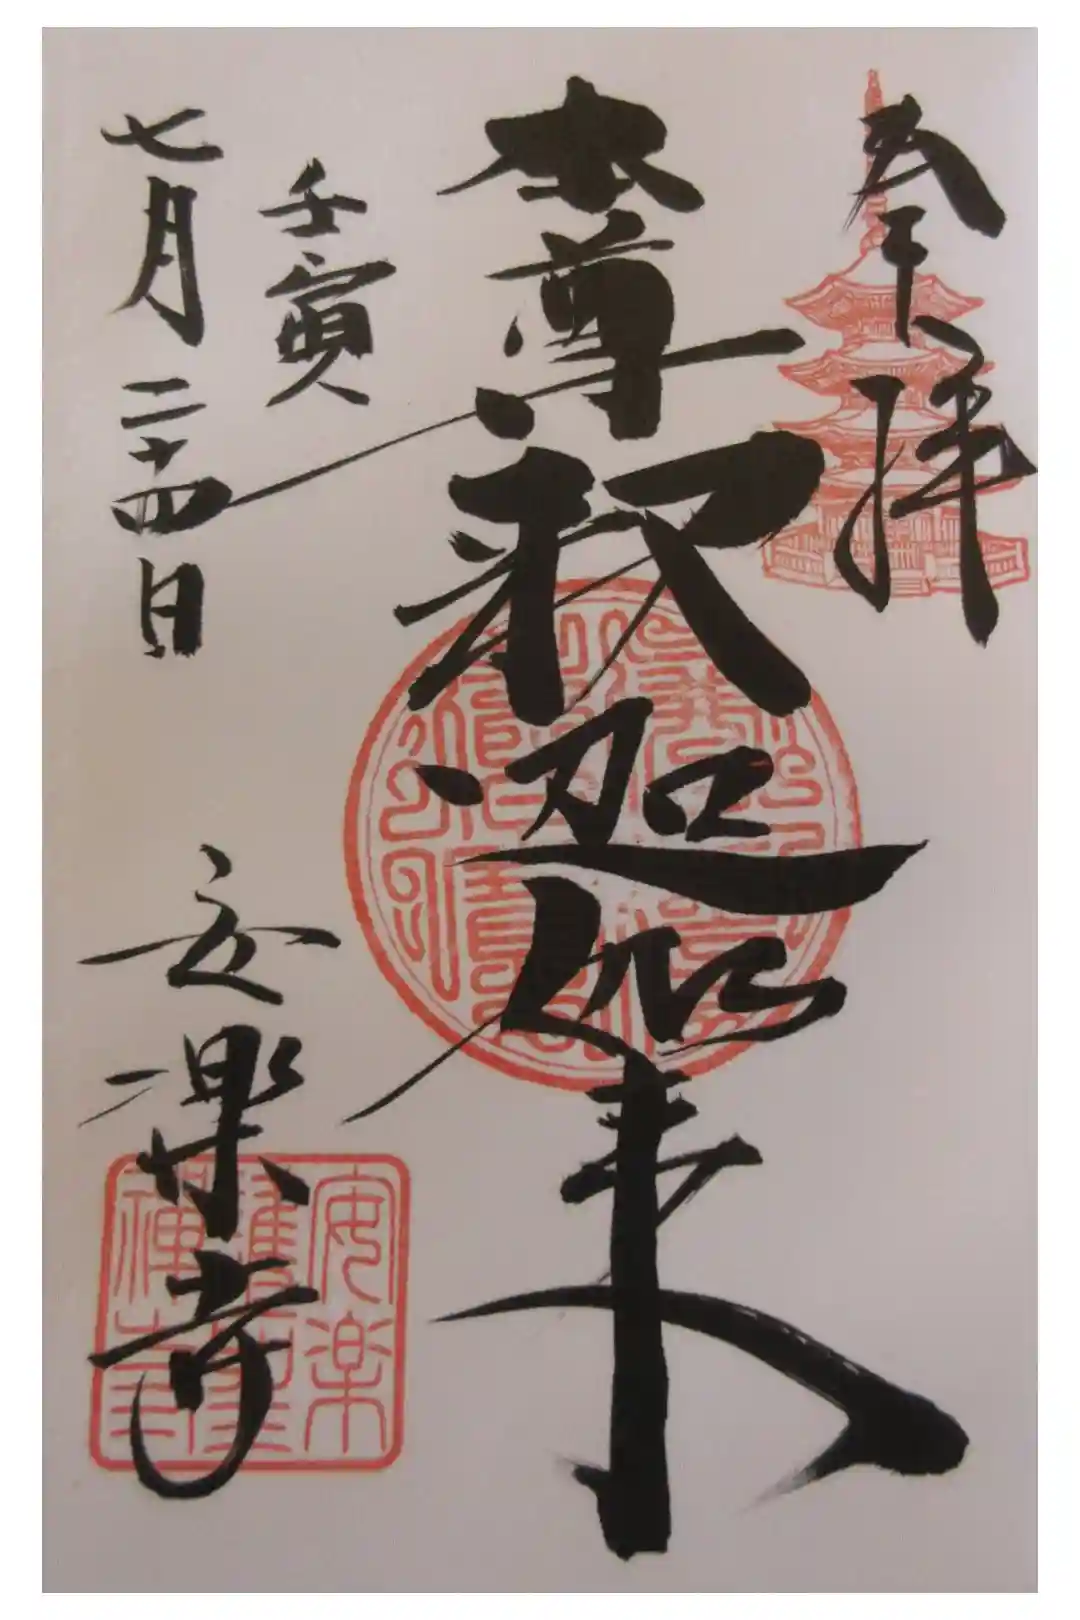 奉拝
本尊釈迦如来
壬寅
七月二十四日
安楽寺
安楽
護聖
禅寺